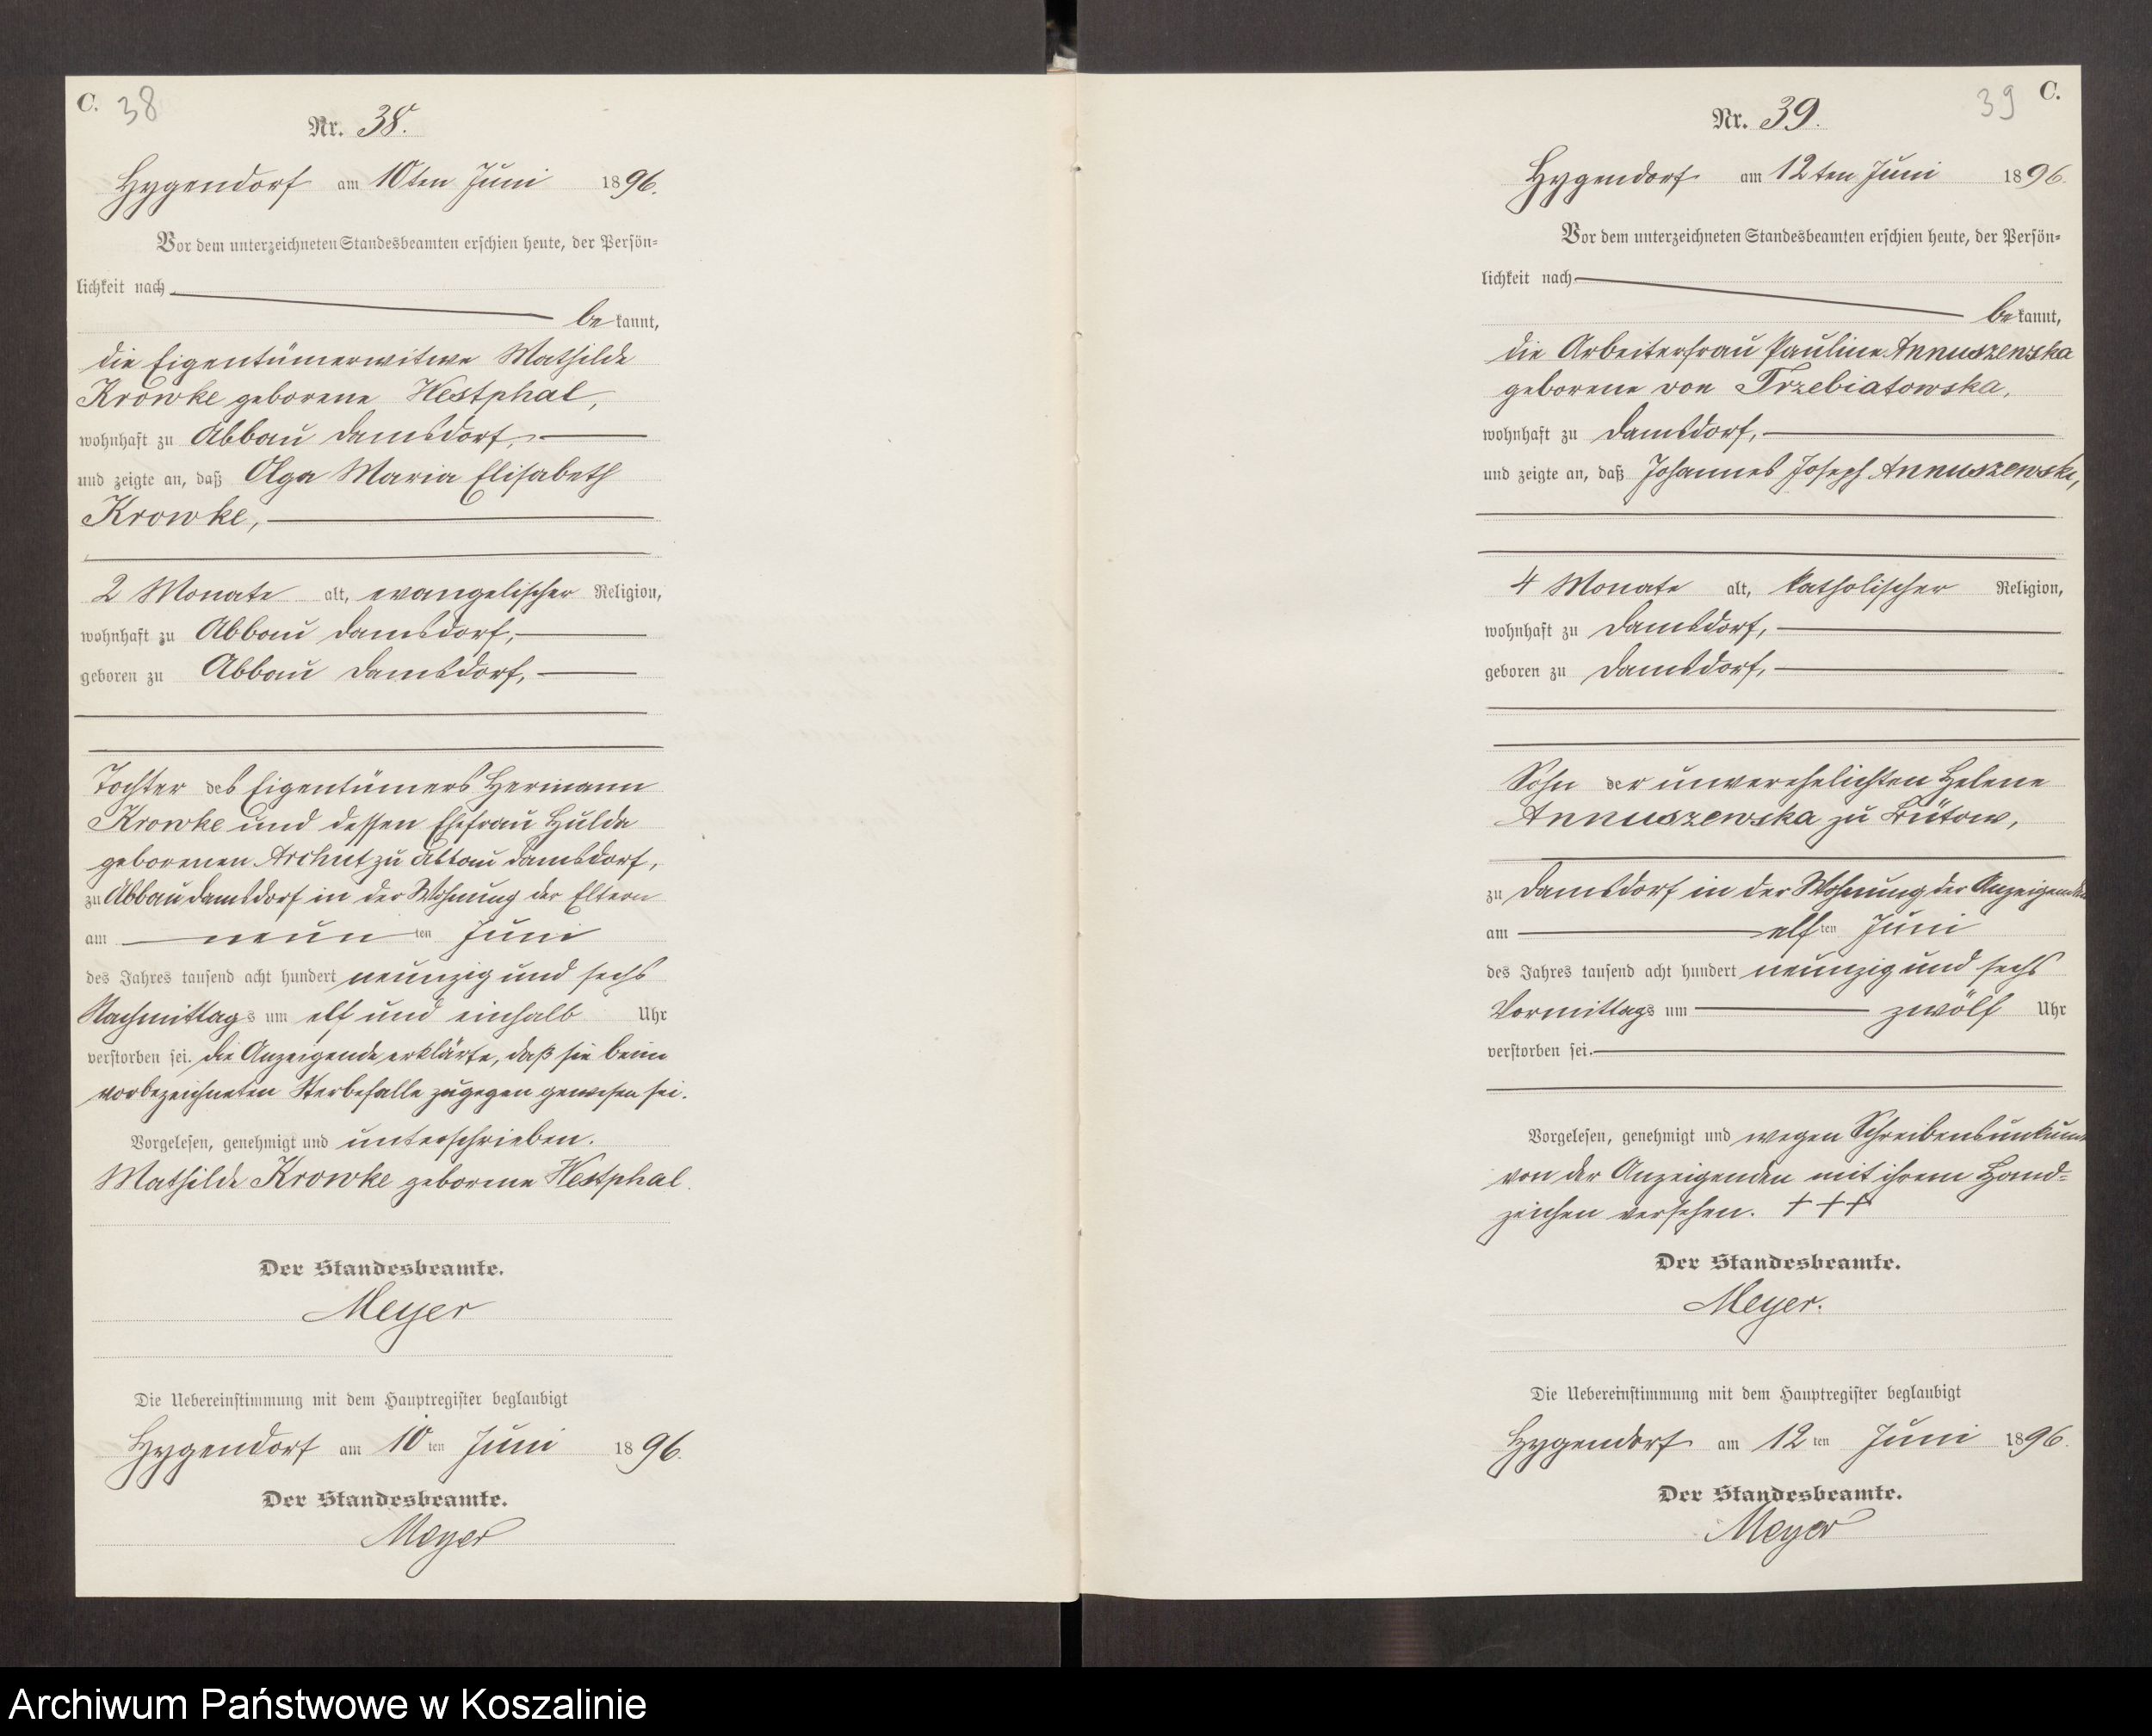 C. 38
Nr. 38.
Hygendorf am 10ten Juni 1896.
Vor dem unterzeichneten Standesbeamten erschien heute, der Persön-
lichkeit nach
bekannt,
die Eigentümerwitwe Mathilde
Krowke geborene Westphal,
wohnhaft zu Abbau Damsdorf,
und zeigte an, daß Olga Maria Elisabeth
Krowke,
2 Monate alt, evangelischer Religion,
wohnhaft zu Abbau Damsdorf,
geboren zu Abbau Damsdorf,
Tochter des Eigentümers Hermann
Krowke und dessen Ehefrau Hulda
geborenen Archut zu Abbau Damsdorf,
zu Abbau Damsdorf in der Wohnung der Eltern
am neunten Juni
des Jahres tausend acht hundert neunzig und sechs
Nachmittags um elf und einhalb Uhr
verstorben sei. Die Anzeigende erklärte, daß sie beim
vorbezeichneten Sterbefalle zugegen gewesen sei.
Vorgelesen, genehmigt und unterschrieben.
Mathilde Krowke geborene Westphal.
Der Standesbeamte.
Meyer
Die Uebereinstimmung mit dem Hauptregister beglaubigt
Hygendorf am 10ten Juni 1896.
Der Standesbeamte.
Meyer
39 C.
Nr. 39.
Hygendorf am 12ten Juni 1896.
Vor dem unterzeichneten Standesbeamten erschien heute, der Persön-
lichkeit nach
bekannt,
die Arbeiterfrau Pauline Annuszewska
geborene von Trzebiatowska,
wohnhaft zu Damsdorf,
und zeigte an, daß Johannes Joseph Annuszewski,
4 Monate alt, katholischer Religion,
wohnhaft zu Damsdorf,
geboren zu Damsdorf,
Sohn der unverehelichten Helene
Annuszewska zu Bütow,
zu Damsdorf in der Wohnung der Anzeigenden
am elften Juni
des Jahres tausend acht hundert neunzig und sechs
Vormittags um zwölf Uhr
verstorben sei.
Vorgelesen, genehmigt und wegen Schreibensunkunde
von der Anzeigenden mit ihrem Hand-
zeichen versehen. +++
Der Standesbeamte.
Meyer.
Die Uebereinstimmung mit dem Hauptregister beglaubigt
Hygendorf am 12ten Juni 1896.
Der Standesbeamte.
Meyer
Archiwum Państwowe w Koszalinie